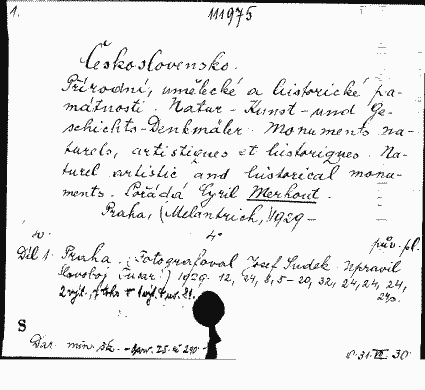 1.
111975
Československo.
Přírodní, umělecké a historické pa-
mátnosti. Natur- Kunst- und Ge-
schichts-Denkmäler. Monuments na-
turels, artistiques et historiques. Na-
turel artistic and historical monu-
ments. Pořádá Cyril Merhout.
Praha, (Melantrich,) 1929 -
4°
Díl 1. Praha. (Fotografoval Josef Sudek. Upravil
Slovoboj Tusar.) 1929. 12, 24, 8, 5-20, 32, 24, 24, 24,
S
Dar. min. šk.